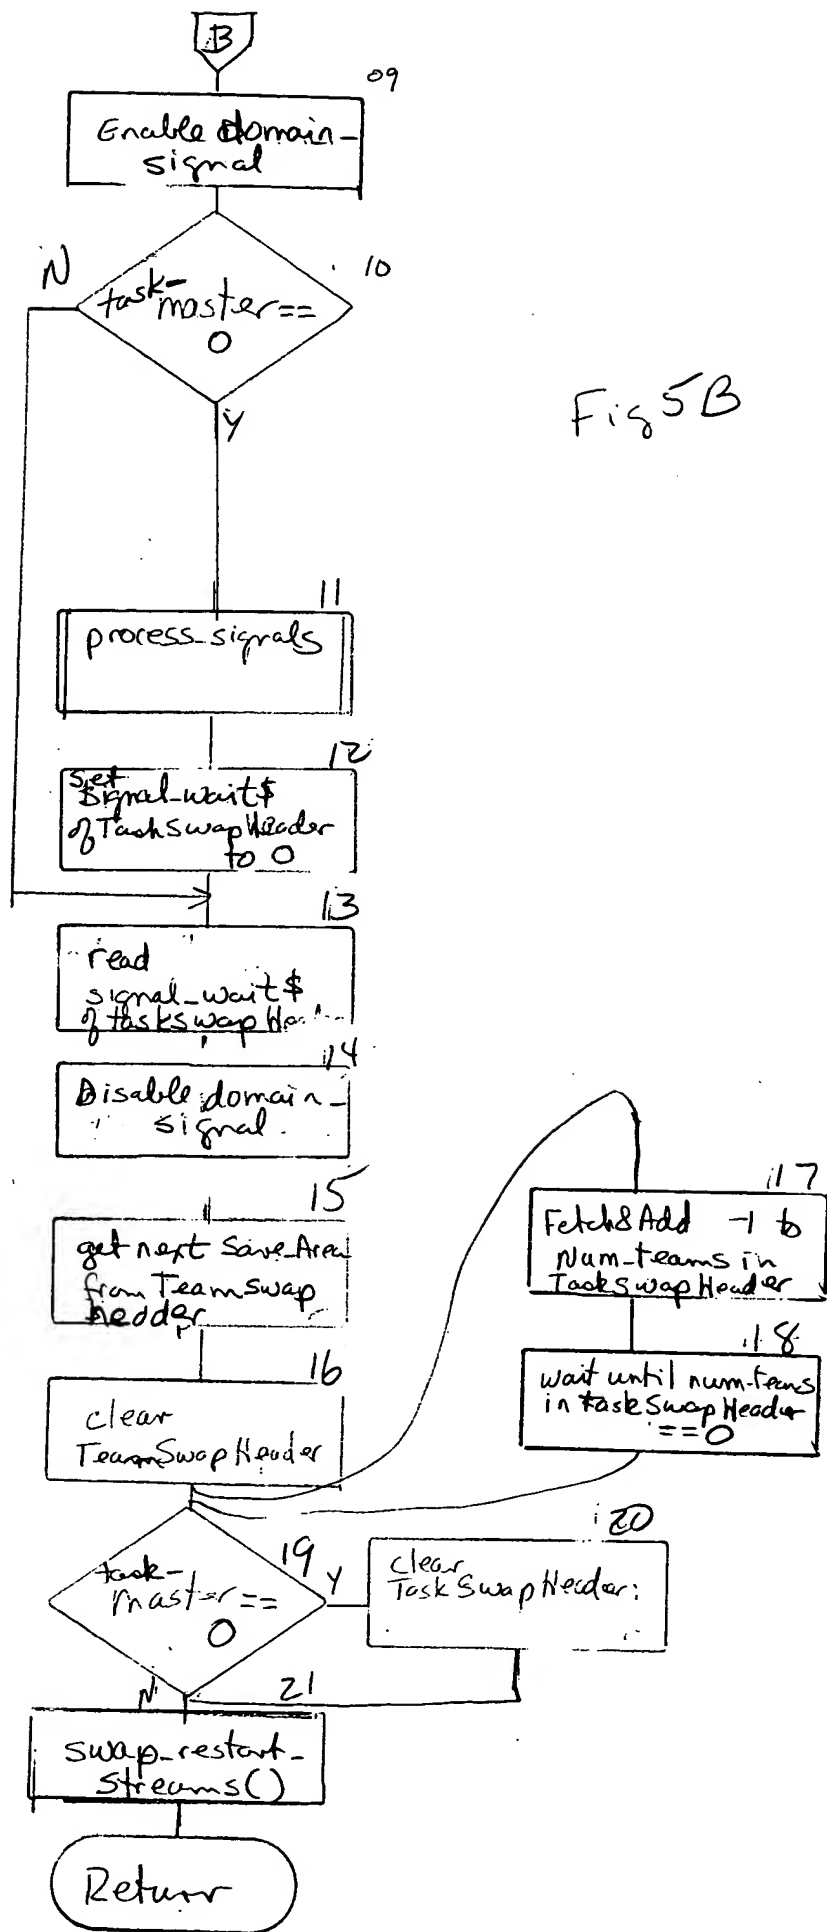 B
09
Enable domain-
signal
10
N
task-
master==
0
Y
Fig 5B
11
process_signals
12
set
signal_wait$
of TaskSwapHeader
to 0
13
read
signal_wait$
of taskSwap
14
Disable domain-
signal
15
get next Save_Area
from TeamSwap
hedder
16
clear
TeamSwapHeader
17
Fetch&Add -1 to
Num-teams in
TaskSwapHeader
18
wait until num-teams
in taskSwapHeader
==0
19
task-
master==
0
Y
20
clear
TaskSwapHeader
N
21
swap_restart_
streams()
Return